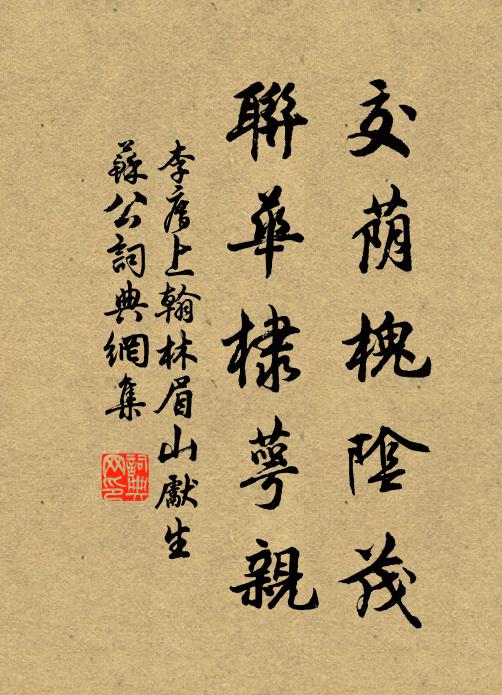 交蔭槐陰茂
聯華棣萼親
李廌上翰林眉山獻生
蘇公詞典網集
詞典网印